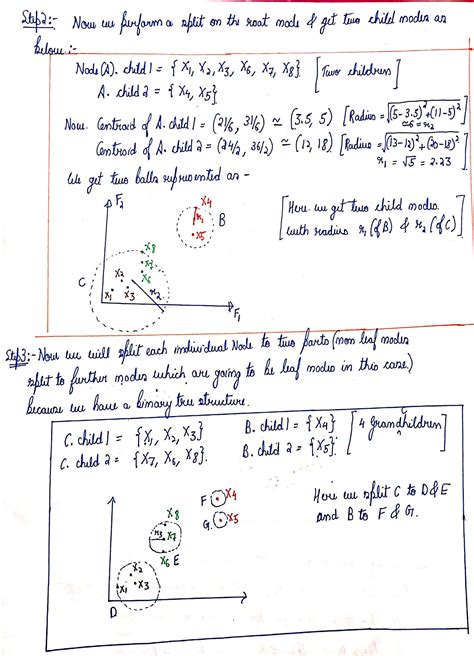 Step2:- Now we perform a split on the root node & get two child nodes as
below:-
Node(A). child1 = {X1, X2, X3, X6, X7, X8} [Two childrens]
A. child2 = {X4, X5}
Now. Centroid of A. child1 = (21/6, 31/6) ≃ (3.5, 5) [Radius = √(5-3.5)²+(11-5)²]
≃6 = r2
Centroid of A. child2 = (24/2, 36/2) ≃ (12, 18) [Radius = √(13-12)²+(20-18)²]
r1 = √5 = 2.23
We get two balls represented as -
F2
X4
r1
X5
B
[Here we get two child nodes
with radius r1 (of B) & r2 (of C)]
C
X8
X7
X6
X2
X1
X3
r2
F1
Step3:- Now we will split each individual Node to two parts (non leaf nodes
split to further nodes which are going to be leaf nodes in this case)
because we have a binary tree structure.
C. child1 = {X1, X2, X3}
C. child2 = {X7, X6, X8}.
B. child1 = {X4}
B. child2 = {X5}.
[4 Grandchildren]
F X4
G. X5
X8
r3 X7
X6 E
X2
X1 X3
D
Here we split C to D&E
and B to F & G.